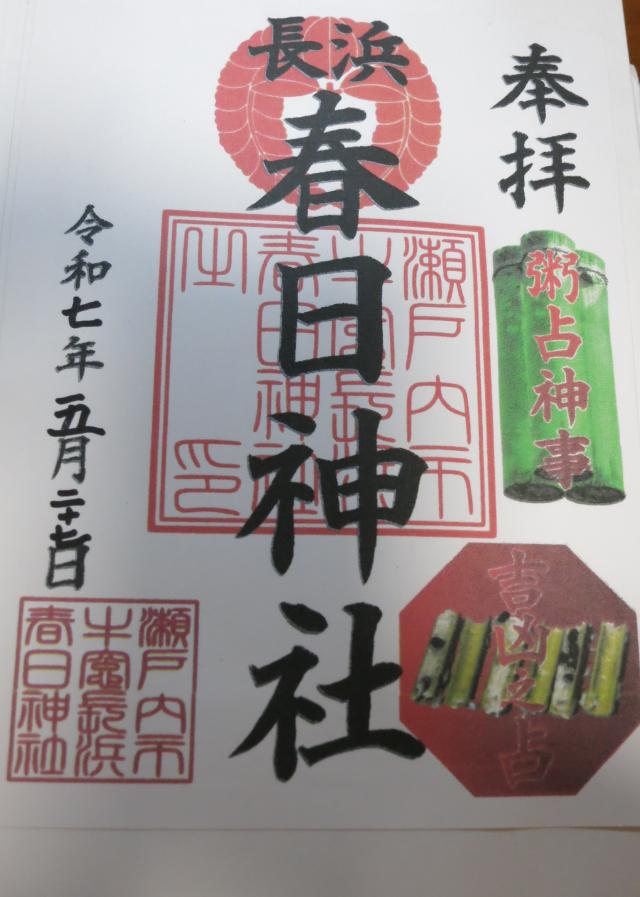 奉拝
粥占神事
吉凶之占
長浜
春日神社
瀬戸内市
土窯長浜
春日神社
之印
令和七年五月二十七日
瀬戸内市
土窯長浜
春日神社